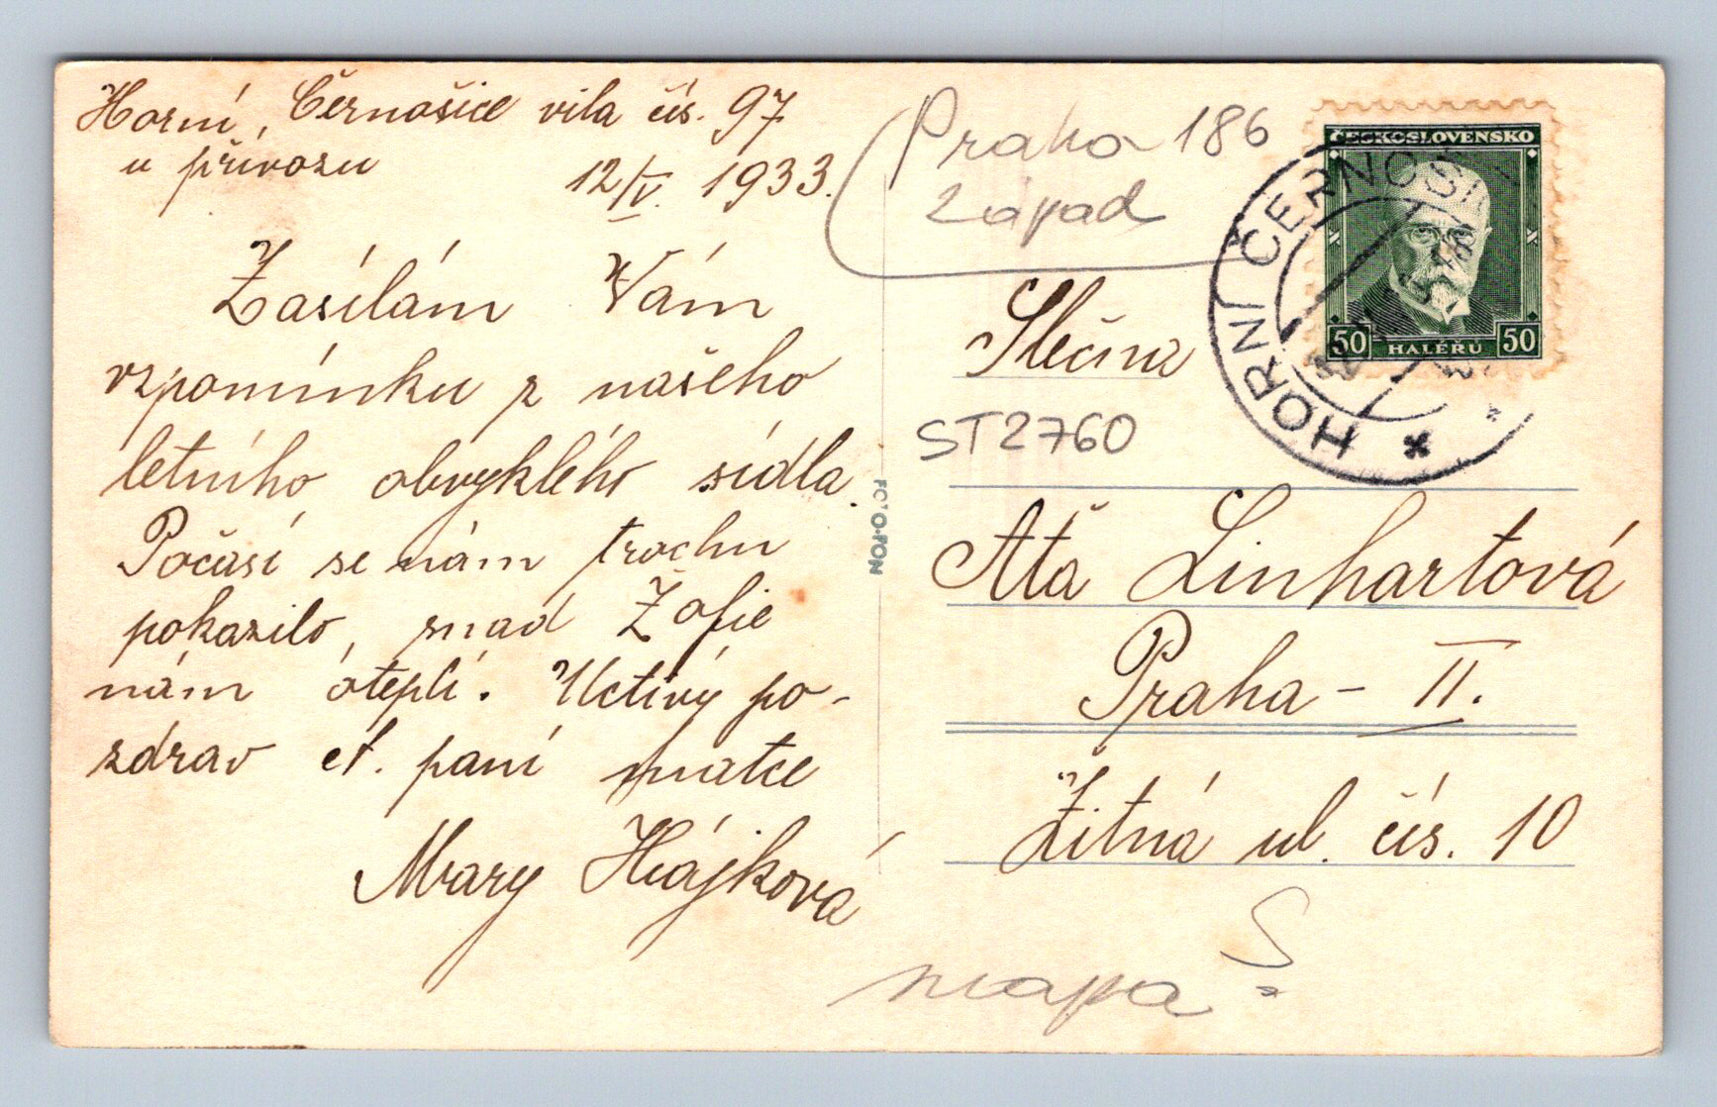 Horní Černošice vila čís. 97
u přívozu
12/V. 1933.
Zasílám Vám
vzpomínku z našeho
letního obvyklého sídla.
Počasí se nám trochu
pokazilo, snad Žofie
nám oteplí. Uctivý po-
zdrav ct. paní matce
Mary Hájková
FOTO-FON
Praha 186
Západ
ČESKOSLOVENSKO
50 HALÉŘŮ 50
HORNÍ ČERNOŠ
Slečna
ST2760
Áťa Linhartová
Praha - II.
Žitná ul. čís. 10
mapa